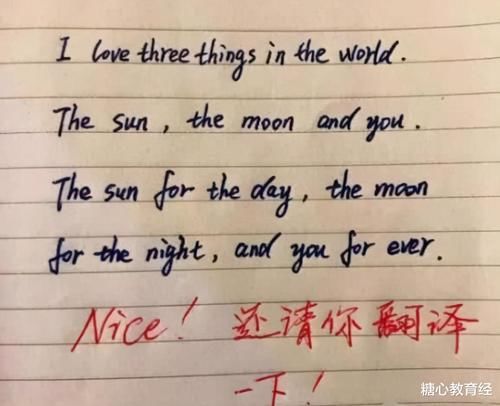 I love three things in the world.
The sun, the moon and you.
The sun for the day, the moon
for the night, and you for ever.
Nice! 还请你翻译
一下!
糖心教育经